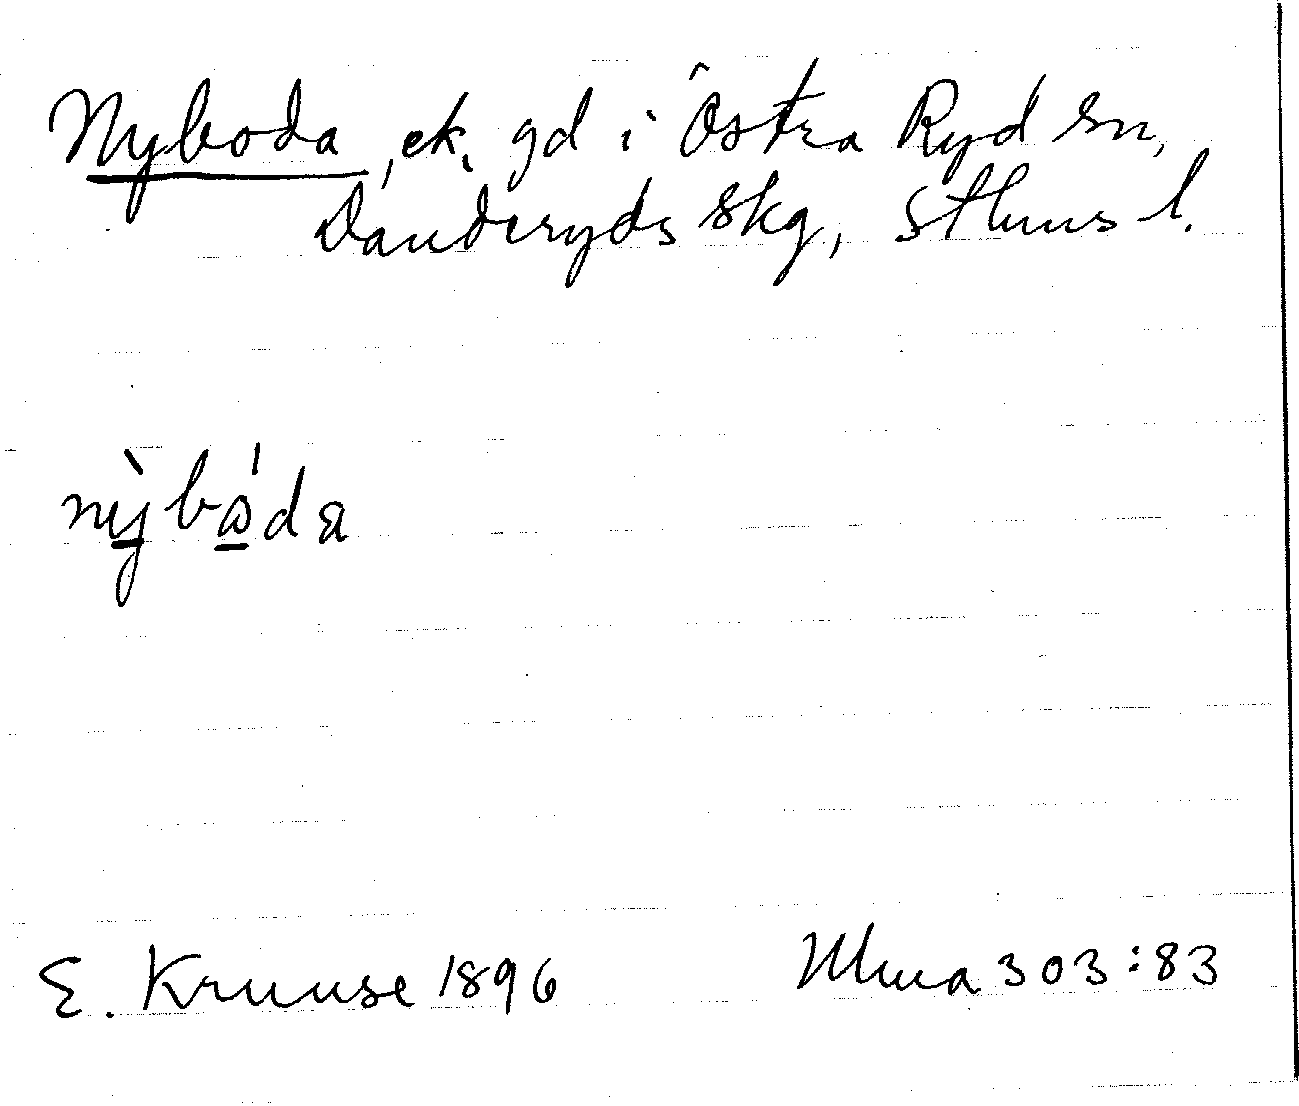 Nyboda, ek. gd i Östra Ryd sn,
Danderyds skg, Sthms l.
nỳ̠bó̠da
E. Kruuse 1896 Ulma 303:83